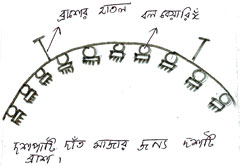 ব্রাশের হাতল
বল বেয়ারিং
দশপাটি দাঁত মাজার জন্য দশটি
ব্রাশ।